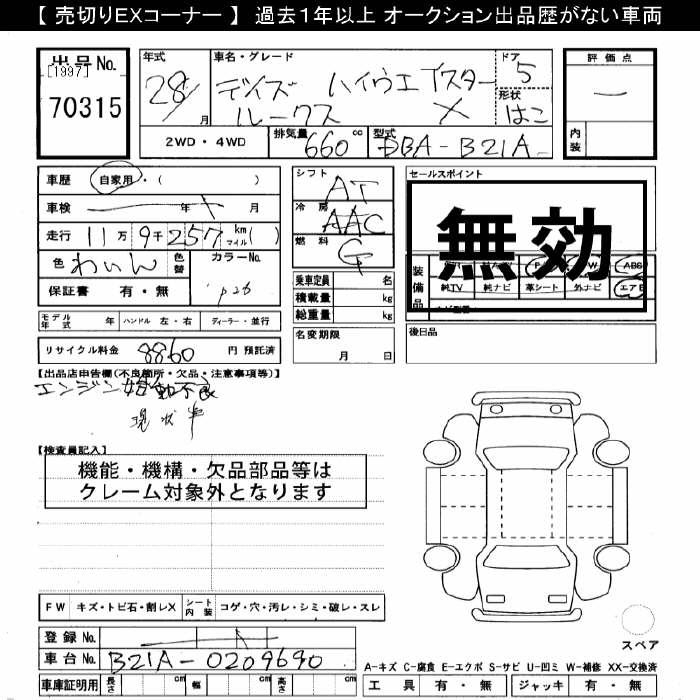 【 売切りEXコーナー 】 過去1年以上 オークション出品歴がない車両
出品No.
[1997]
70315
年式
28/
月
車名・グレード
デイズ ハイウェイスター
ルークス X
ドア
5
形状
はこ
評価点
—
内装
2WD・4WD
排気量
660
cc
型式
DBA-B21A
車歴 自家用・( )
車検 年 月
走行 11万 9千 257 km マイル ( )
色 わいん 色替 カラーNo.
保証書 有・無 P26
モデル年式 年 ハンドル 左・右 ディーラー・並行
リサイクル料金 8860 円 預託済
シフト AT
冷房 AAC
燃料 G
乗車定員 名
積載量 kg
総重量 kg
名変期限
月 日
セールスポイント
無効
装備品
ABS
純TV 純ナビ 革シート 外ナビ エアB
後日品
【出品店申告欄(不良箇所・欠品・注意事項等)】
エンジン始動不良
現状車
【検査員記入】
機能・機構・欠品部品等は
クレーム対象外となります
FW キズ・トビ石・割レX シート内装 コゲ・穴・汚レ・シミ・破レ・スレ
登録No.
車台No. B21A-0209690
車庫証明用 長さ cm 幅 cm 高さ cm
スペア
A-キズ C-腐食 E-エクボ S-サビ U-凹ミ W-補修 XX-交換済
工具 有・無 ジャッキ 有・無